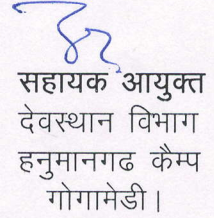 सहायक आयुक्त
देवस्थान विभाग
हनुमानगढ कैम्प
गोगामेडी।